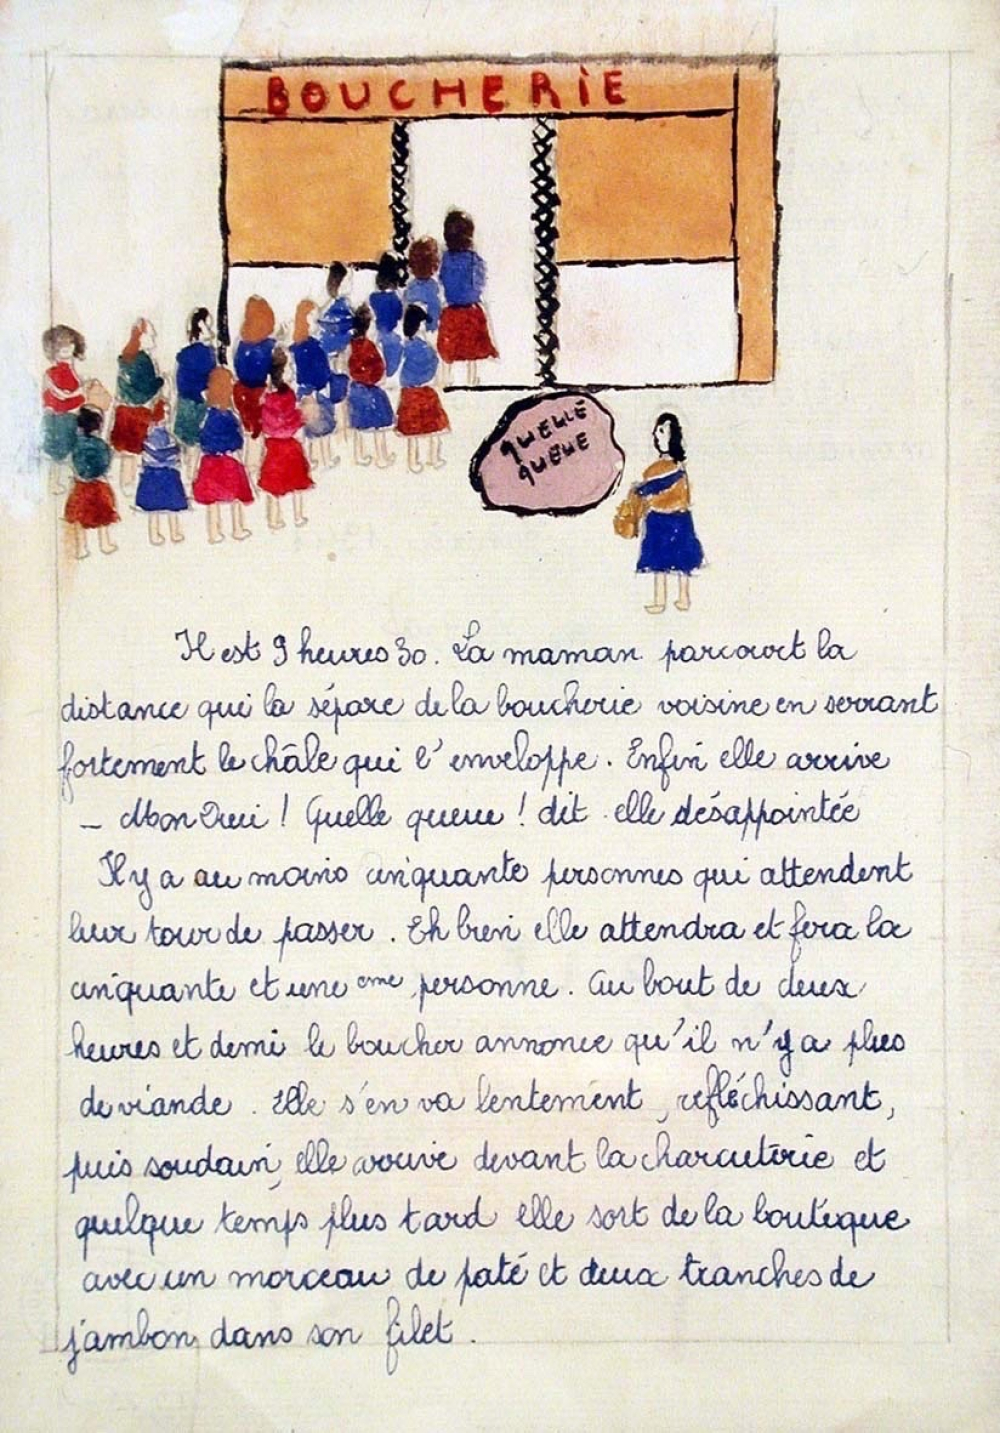 BOUCHERIE
QUELLE
QUEUE
Il est 9 heures 30. La maman parcourt la
distance qui la sépare de la boucherie voisine en serrant
fortement le châle qui l'enveloppe. Enfin elle arrive
– Mon Dieu ! Quelle queue ! dit elle désappointée
Il y a au moins cinquante personnes qui attendent
leur tour de passer. Eh bien elle attendra et fera la
cinquante et une eme personne. Au bout de deux
heures et demi le boucher annonce qu'il n'y a plus
de viande. Elle s'en va lentement, refléchissant,
puis soudain, elle arrive devant la charcuterie et
quelque temps plus tard elle sort de la boutique
avec un morceau de paté et deux tranches de
jambon dans son filet.